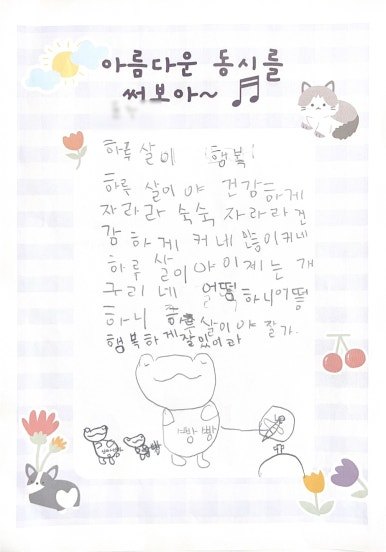 아름다운 동시를
써보아~
하루 살이 행복
하루 살이야 건강하게
자라라 쑥쑥 자라라 건
강하게 커네 만이커네
하루 살이야이제는 개
구리네 어떻하니어떻
하니 하루살이야 잘가.
행복하게잘있어라
빵빵